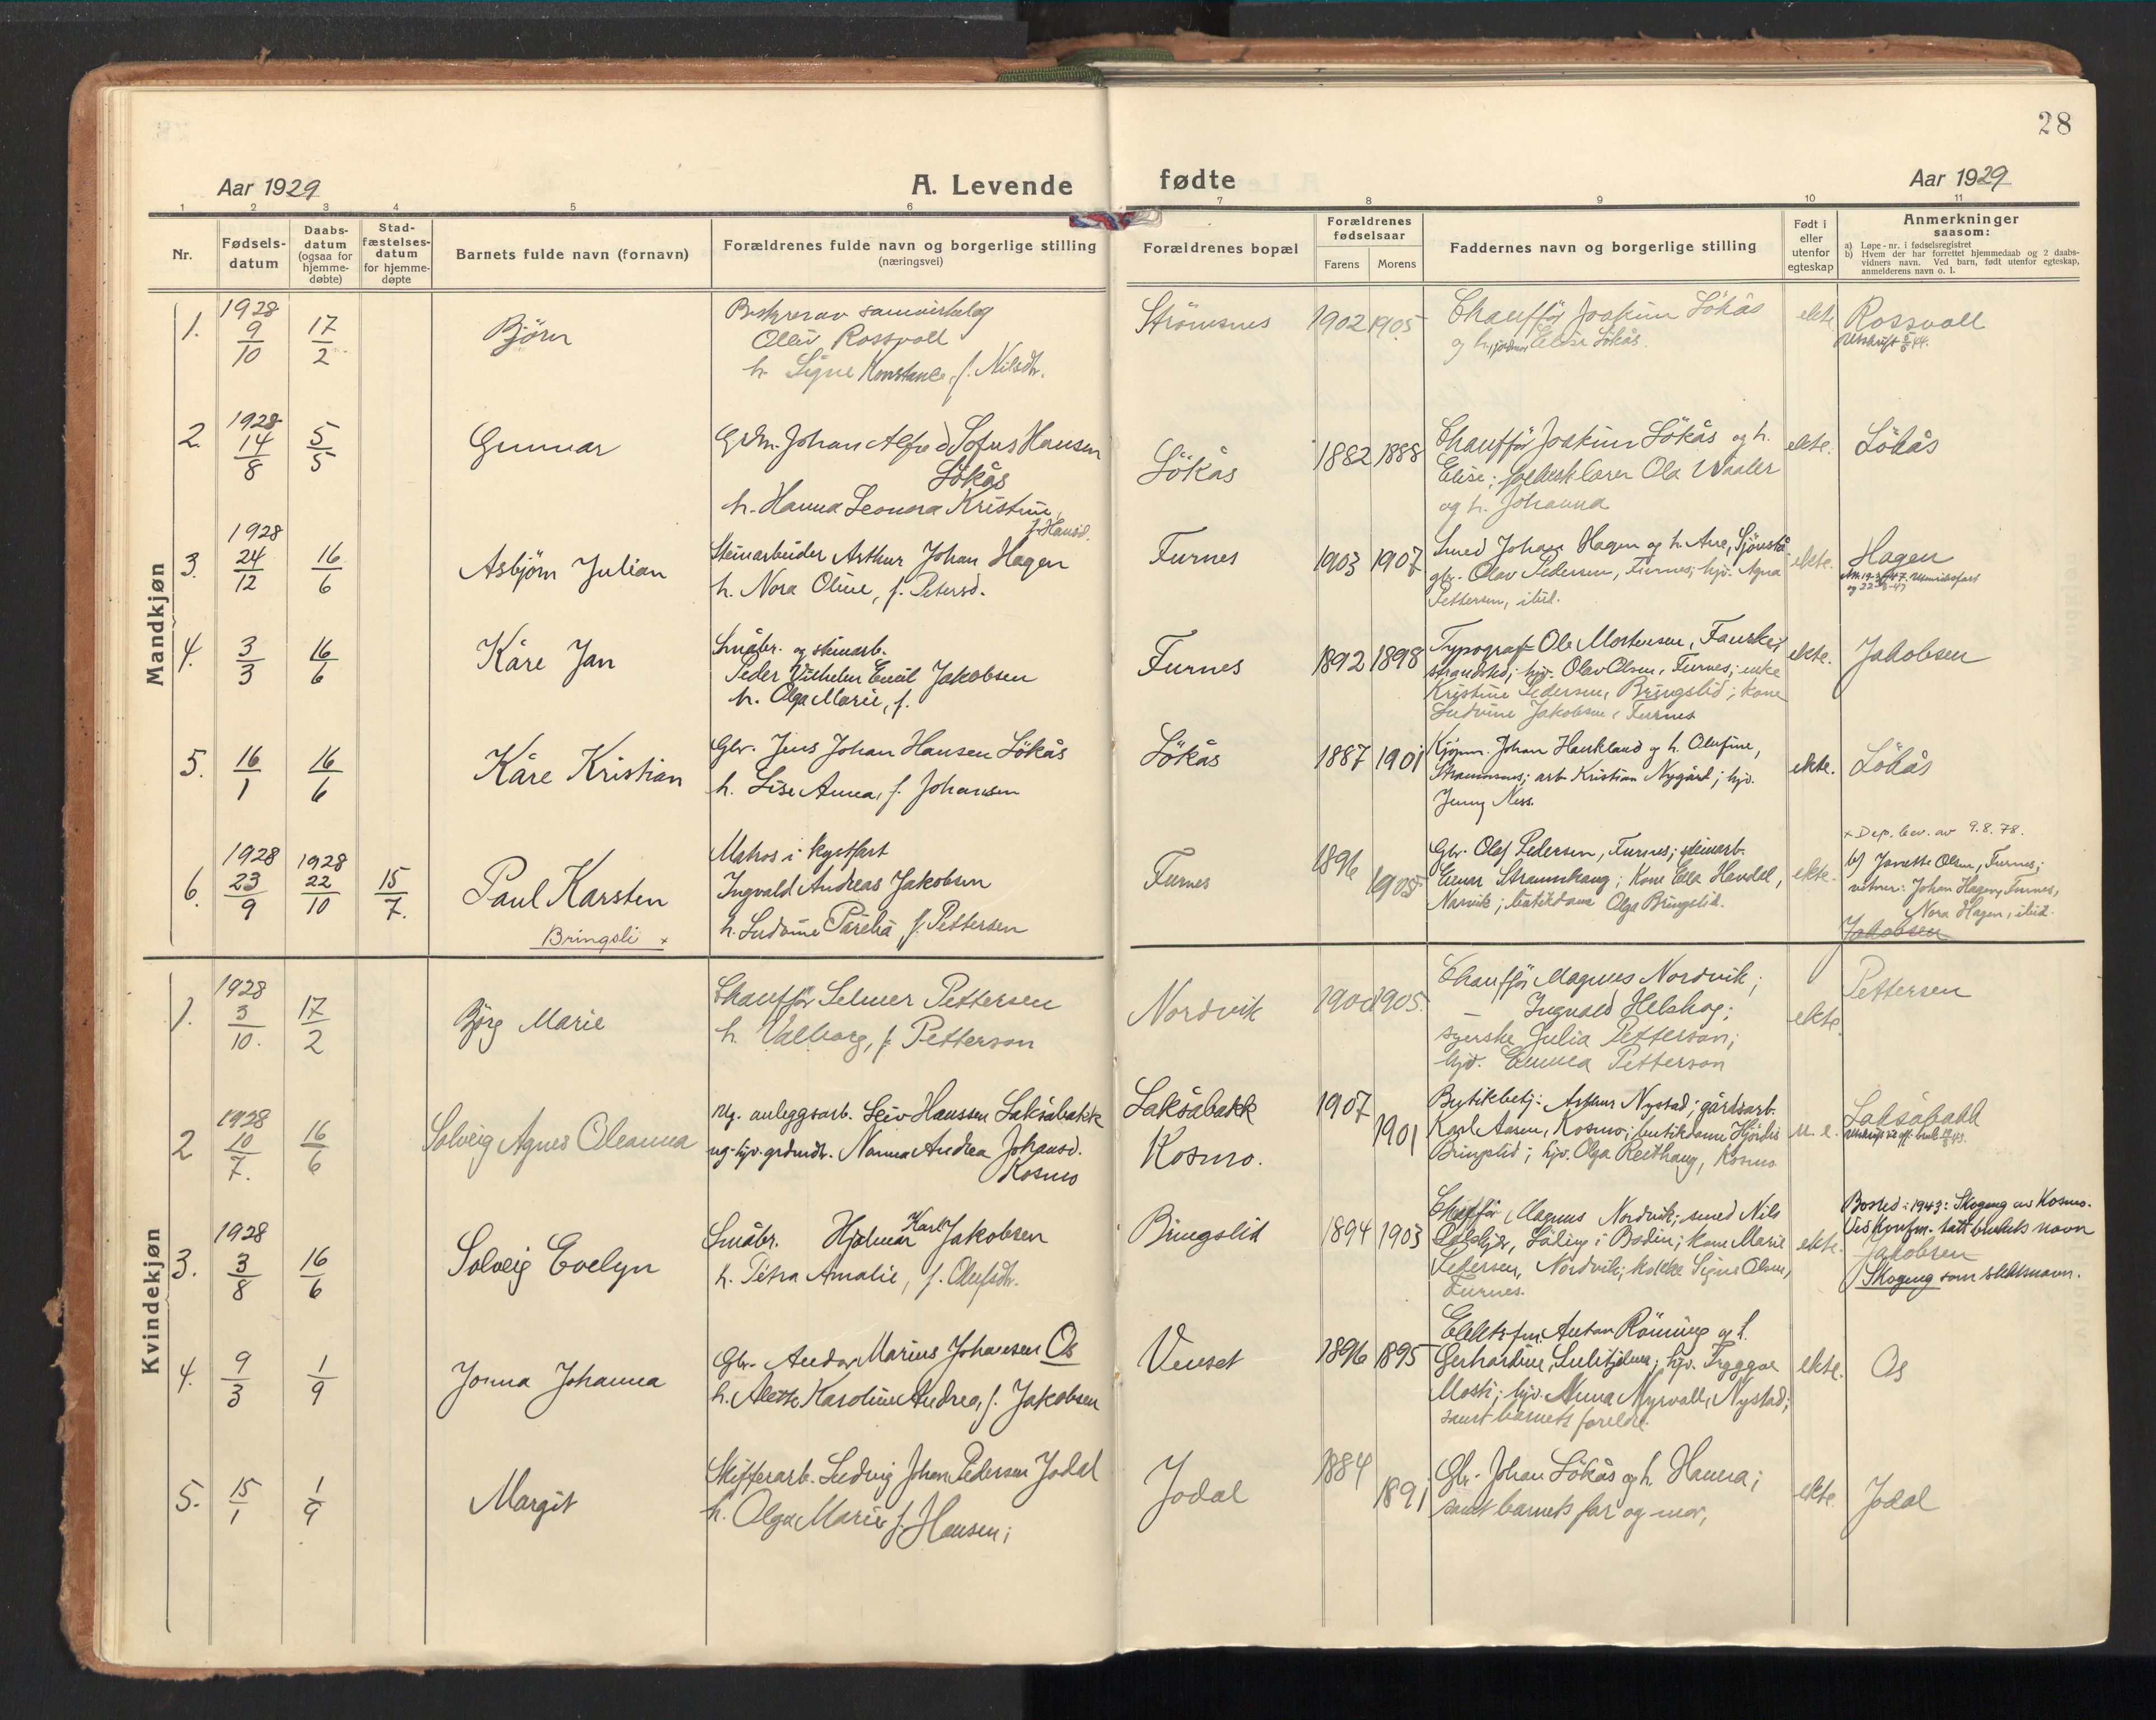 28
Aar 1929
A. Levende
fødte
Aar 1929
1 2 3 4 5 6 7 8 9 10 11
Nr.
Fødsels-
datum
Daabs-
datum
(ogsaa for
hjemme-
døbte)
Stad-
fæstelses-
datum
for hjemme-
døpte
Barnets fulde navn (fornavn)
Forældrenes fulde navn og borgerlige stilling
(næringsvei)
Forældrenes bopæl
Forældrenes
fødselsaar
Farens
Morens
Faddernes navn og borgerlige stilling
Født i
eller
utenfor
egteskap
Anmerkninger
saasom:
a) Løpe-nr. i fødselsregistret
b) Hvem der har forrettet hjemmedaab og 2 daabs-
vidners navn. Ved barn, født utenfor egteskap,
anmelderens navn o. l.
Mandkjøn
1. 1928 9/10 17/2 Bjørn
Olav Rossvoll
h. Signe Konstance, f. Nilsdtr.
Strömsnes 1902 1905
Chaufför Joakim Lökås
og h. Elise Lökås.
ekte
Rossvoll
Utskrift
2. 1928 14/8 5/5 Gunnar
Grdm. Johan Alfred Sofus Hansen
Lökås
h. Hanna Leonora Kristine,
f. Hansd.
Lökås 1882 1888
Chauffför Joakim Lökås og h.
Elise; Ola Waaler
og h. Johanna
ekte.
Lökås
3. 1928 24/12 16/6 Asbjörn Julian
Steinarbeider Arthur Johan Hagen
h. Nora Oline, f. Petersd.
Furnes 1903 1907
Smed Johan Hagen og h. Ane, Sjönstå
gbr. Olav Pedersen, Furnes; hjv. Agna
Pettersen, ibid.
ekte.
Hagen
4. 3/3 16/6 Kåre Jan
Småbr. og steinarb.
Peder Vilhelm Emil Jakobsen
h. Olga Marie, f.
Furnes 1892 1898
Typograf Ole Mortensen, Fauske
strandsted; hjv. Olav Olsen, Furnes; enke
Kristine Pedersen, Bringslid; kone
Ludvine Jakobsen, Furnes
ekte.
Jakobsen
5. 16/1 16/6 Kåre Kristian
Gbr. Jens Johan Hansen Lökås
h. Lise Anna, f. Johansen
Lökås 1887 1901
Kjøpm. Johan Haukland og h. Olufine,
Straumsnes; arb. Kristian Nygård; hjv.
Jenny Ness.
ekte.
Lökås
6. 1928 23/9 1928 22/10 15/7. Paul Karsten
Bringsli x
Matros i kystfart
Ingvald Andreas Jakobsen
h. Ludvine Parelia f. Pettersen
Furnes 1896 1905
Gbr. Olaf Pedersen, Furnes; steinarb.
Einar Straumhaug; Kone Ella Havdal,
Narvik; butikdame Olga Bringslid.
ekte.
x Dep. bev. av 9.8.78.
b) Janette Olsen, Furnes;
vitner: Johan Hagen, Furnes,
Nora Hagen, ibid.
Jakobsen
Kvindekjøn
1. 1928 3/10. 17/2 Björg Marie
Chauffför Selmer Pettersen
h. Valborg, f. Petterson
Nordvik 1900 1905.
Chauffför Magnus Nordvik;
Ingvald Helskog;
syerske Julia Petterson;
hjv. Emma Petterson
ekte.
Pettersen
2 1928 10/7. 16/6 Solveig Agnes Oleanna
Ug. anleggsarb. Leiv Hanssen Laksåbakk
ug. hjv. grdmdtr. Nanna Andrea Johansd.
Kosmo
Laksåbakk 1907
Kosmo. 1901
Butikbetj. Arthur Nystad; gårdsarb.
Karl Aasen, Kosmo; butikdame Hjördis
Bringslid; hjv. Olga Reithaug, Kosmo
u. e.
Laksåbakk
3. 1928 3/8 16/6 Solveig Evelyn
Småbr. Hjalmar Karl Jakobsen
h. Petra Amalie, f. Olufsdtr.
Bringslid 1894 1903
Chauffför Magnus Nordvik; smed Nils
Löding i Bodin; kone Marie
Pedersen, Nordvik; kokke Signe Olsen,
Furnes.
ekte.
Bosted i 1943: Skogeng av Kosmo.
Ved konfm. tatt brukets navn
Jakobsen
Skogeng som slektsnavn.
4. 9/3 1/9 Jonna Johanna
Gbr. Andor Marius Johansen Os
h. Aleth Karoline Andrea, f. Jakobsen
Venset 1896 1895
Elektrfm. Anton Röming og h.
Gerhardine, Sulitjelma; hjv. Tryggve
Mosti; hjv. Anna Myrvoll, Nystad;
samt barnets foreldre.
ekte.
Os
5. 15/1 1/9 Margit
Skifferarb. Ludvig Johan Pedersen Jodal
h. Olga Marie f. Hansen;
Jodal 1884 1891
Gbr. Johan Lökås og h. Hanna;
samt barnets far og mor,
ekte.
Jodal